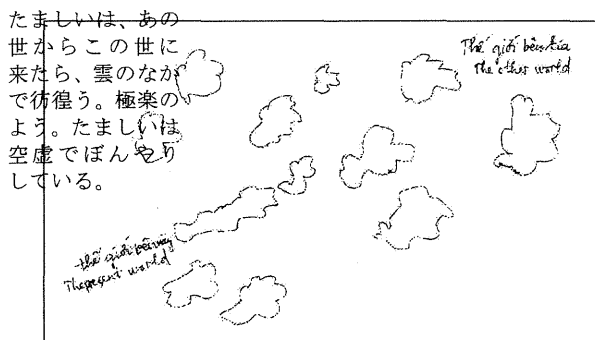 たましいは、あの
世からこの世に
来たら、雲のなか
で彷徨う。極楽の
よう。たましいは
空虚でぼんやり
している。
Thế giới bên kia
The other world
thế giới bên này
The present world